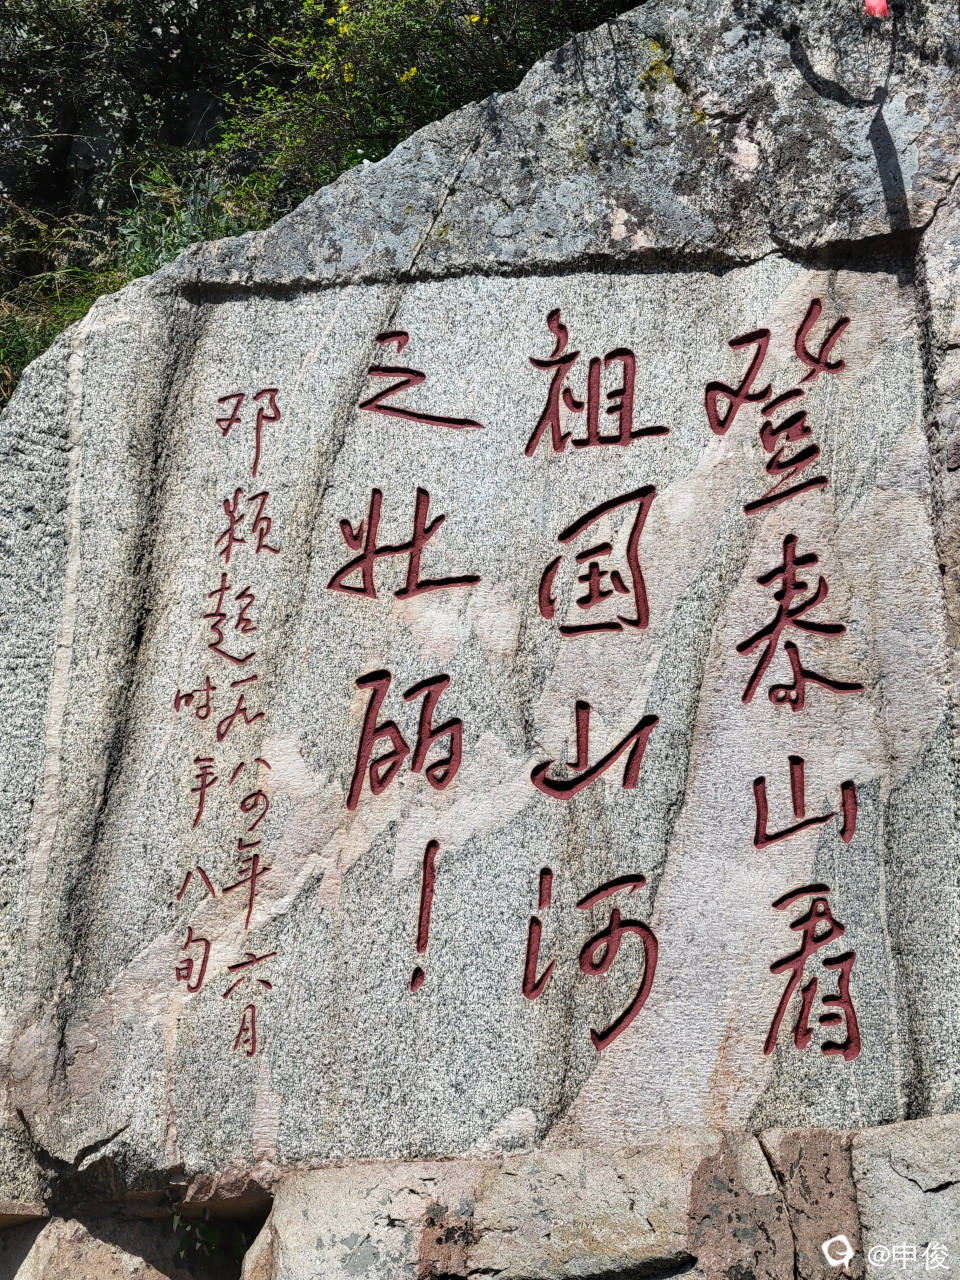 登泰山看
祖国山河
之壮丽！
邓颖超一九八四年六月
时年八旬
@申俊